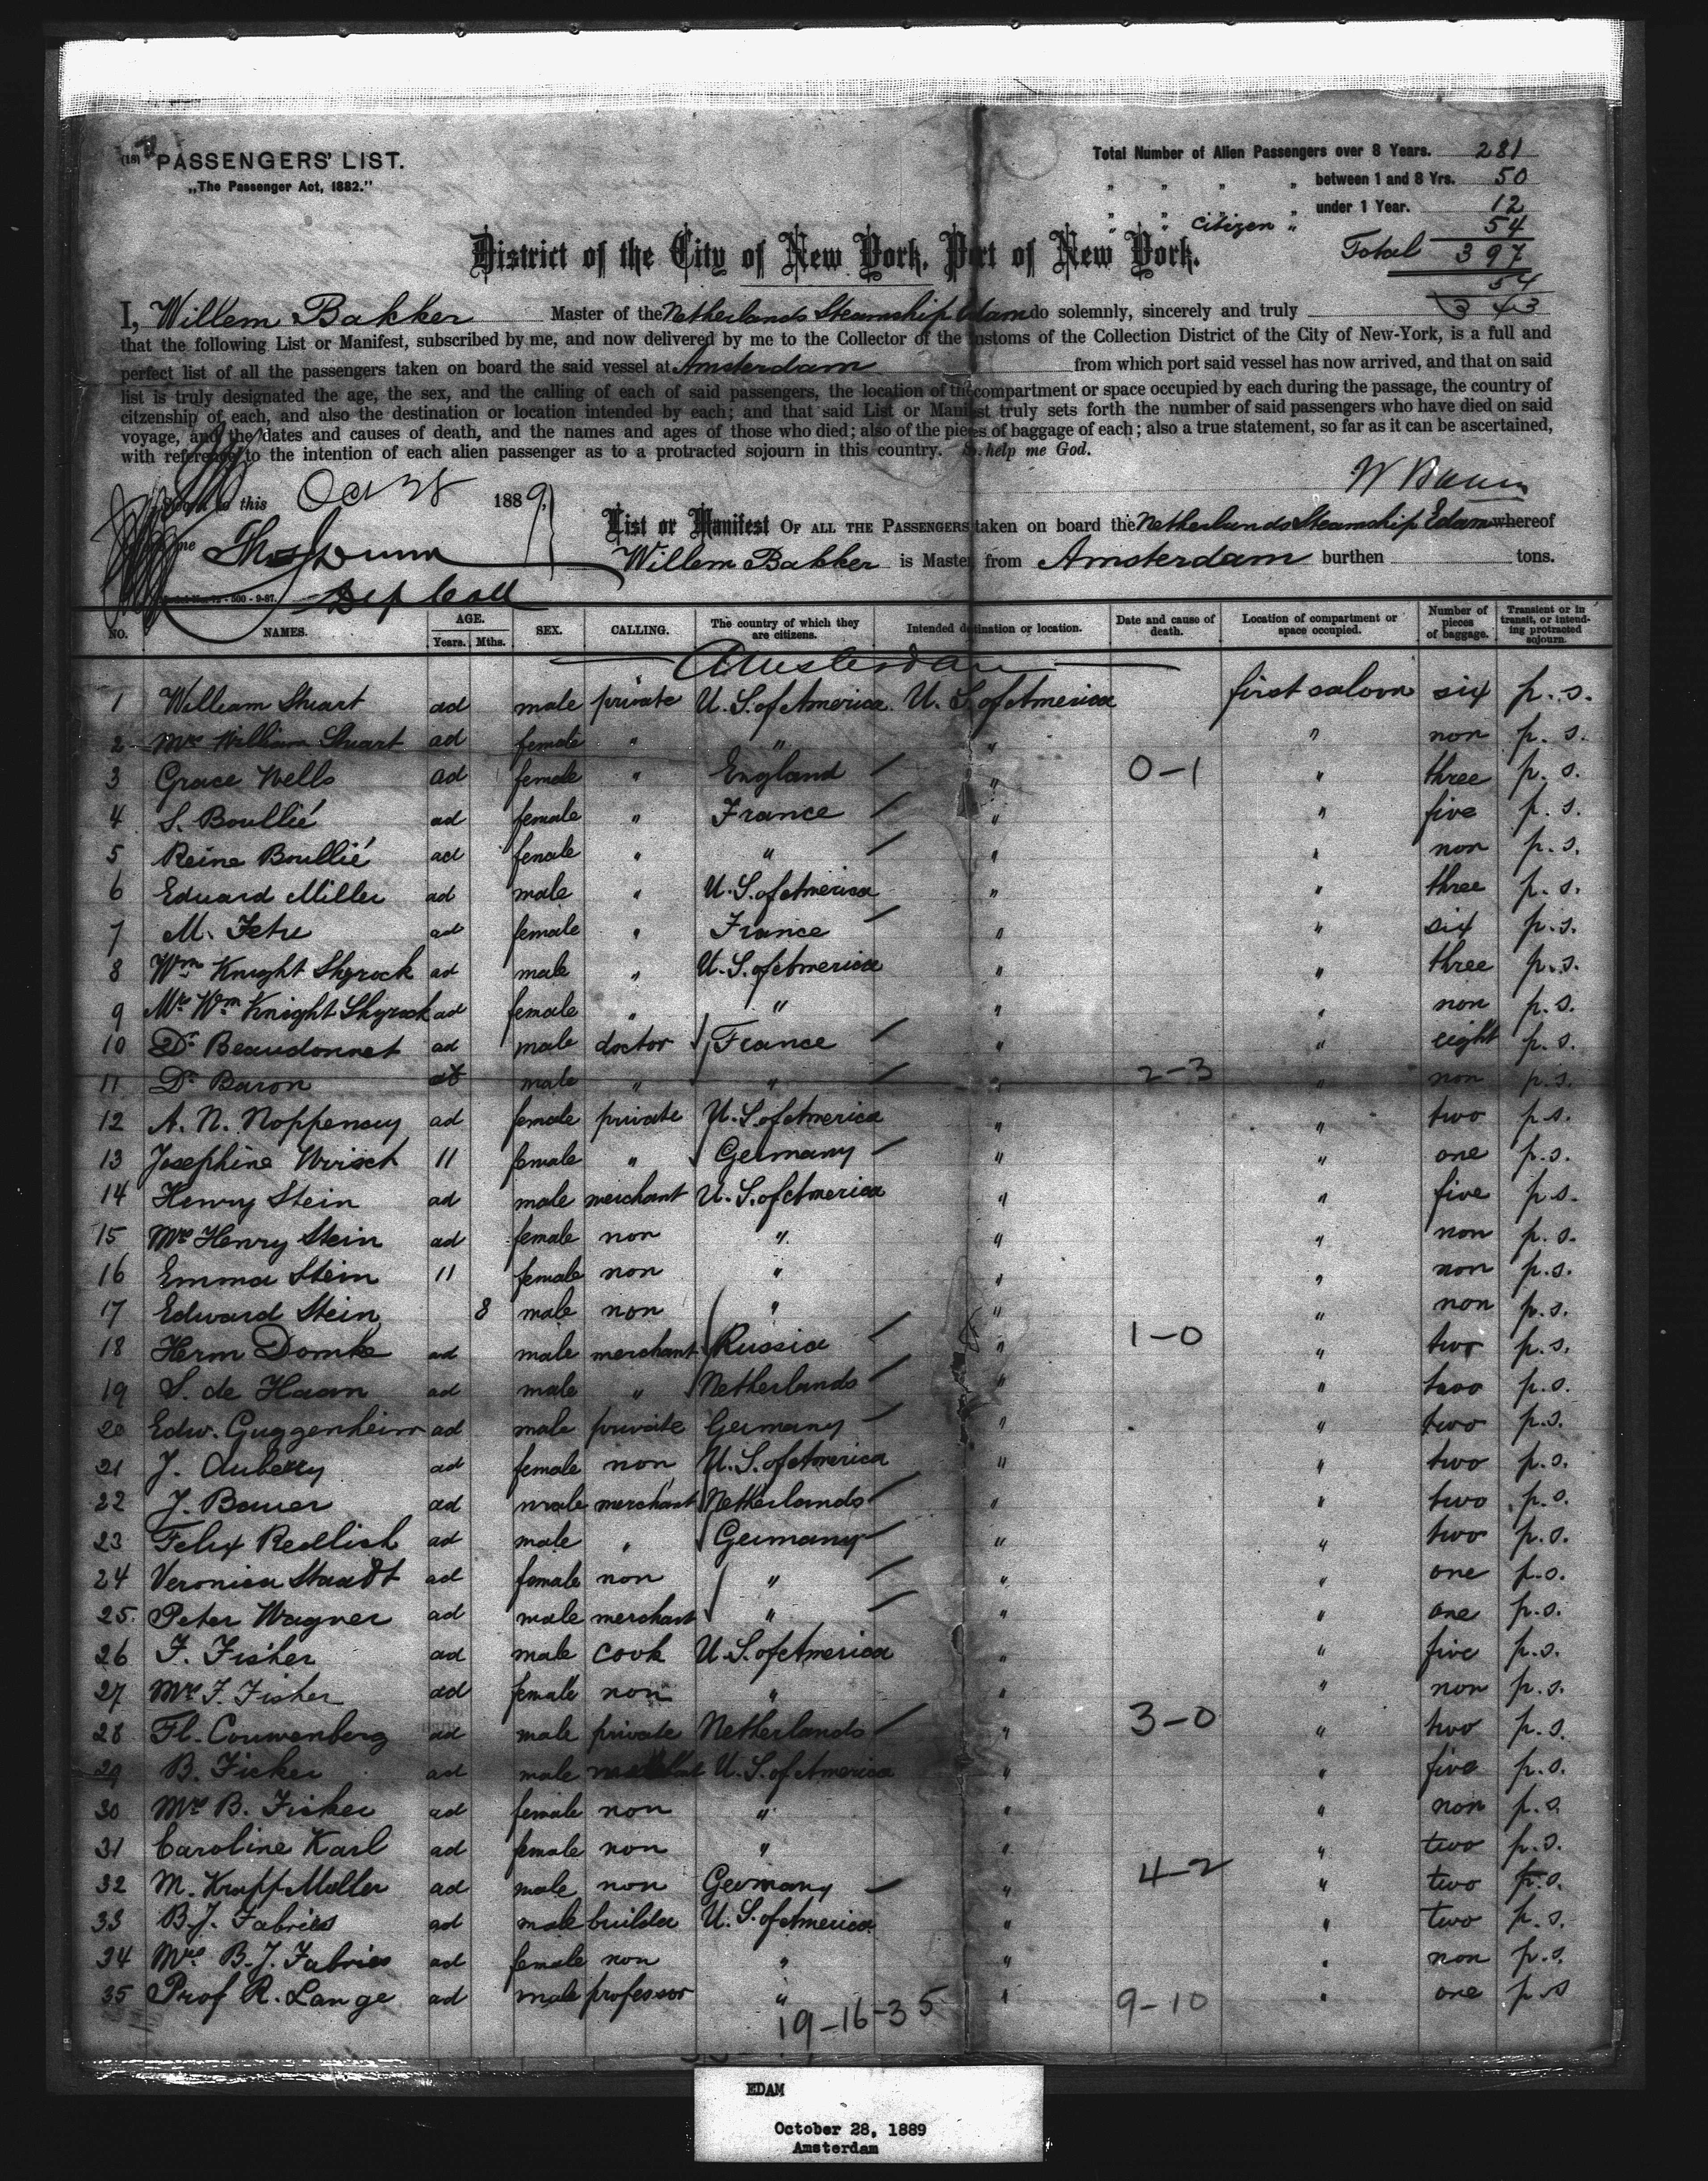 (18) PASSENGERS' LIST.
„The Passenger Act, 1882."
Total Number of Alien Passengers over 8 Years. 281
„ „ „ „ between 1 and 8 Yrs. 50
„ „ „ „ under 1 Year. 12
„ „ Citizen „ 54
Total 397
54
343
District of the City of New York, Port of New York.
I, Willem Bakker Master of the Netherlands Steamship Edam do solemnly, sincerely and truly
that the following List or Manifest, subscribed by me, and now delivered by me to the Collector of the Customs of the Collection District of the City of New-York, is a full and
perfect list of all the passengers taken on board the said vessel at Amsterdam from which port said vessel has now arrived, and that on said
list is truly designated the age, the sex, and the calling of each of said passengers, the location of the compartment or space occupied by each during the passage, the country of
citzenship of each, and also the destination or location intended by each; and that said List or Manifest truly sets forth the number of said passengers who have died on said
voyage, and the dates and causes of death, and the names and ages of those who died; also of the pieces of baggage of each; also a true statement, so far as it can be ascertained,
with reference to the intention of each alien passenger as to a protracted sojourn in this country. So help me God.
Sworn to this Oct 28 1889
List or Manifest OF ALL THE PASSENGERS taken on board the Netherlands Steamship Edam whereof
Willem Bakker is Master, from Amsterdam burthen tons.
me Thos Dunn
Dep Coll
NO. NAMES. AGE. Years. Mths. SEX. CALLING. The country of which they are citizens. Intended destination or location. Date and cause of death. Location of compartment or space occupied. Number of pieces of baggage. Transient or in transit, or intending protracted sojourn.
Amsterdam
1 William Stuart ad male private U. S. of America U. S. of America first saloon six p. s.
2 Mrs William Stuart ad female " " " " non p. s.
3 Grace Wells ad female " England " 0-1 " three p. s.
4 S. Boullié ad female " France " " five p. s.
5 Reine Boullié ad female " " " " non p. s.
6 Eduard Miller ad male " U. S. of America " " three p. s.
7 M. Fetu ad female " France " " six p. s.
8 Wm Knight Shyrock ad male " U. S. of America " " three p. s.
9 Mrs Wm Knight Shyrock ad female " " " " non p. s.
10 Dr Beaudonnet ad male doctor France " " eight p. s.
11 Dr Baron ad male " " " 2-3 " non p. s.
12 A. N. Noppeney ad female private U. S. of America " " two p. s.
13 Josephine 11 female " Germany " " one p. s.
14 Henry Stein ad male merchant U. S. of America " " five p. s.
15 Mrs Henry Stein ad female non " " " non p. s.
16 Emma Stein 11 female non " " " non p. s.
17 Edward Stein 8 male non " " " non p. s.
18 Herm Domke ad male merchant Russia " 1-0 " two p. s.
19 S. de Haan ad male " Netherlands " " two p. s.
20 Edw. Guggenheim ad male private Germany " " two p. s.
21 J. Auberry ad female non U. S. of America " " two p. s.
22 J. Bauer ad male merchant Netherlands " " two p. s.
23 Felix Redlich ad male " Germany " " two p. s.
24 Veronica Staadt ad female non " " " one p. s.
25. Peter Wagner ad male merchant " " " one p. s.
26 F. Fisher ad male cook U. S. of America " " five p. s.
27 Mrs F. Fisher ad female non " " " non p. s.
28 Fl. Couwenberg ad male private Netherlands " 3-0 " two p. s.
29 B. Ficker ad male U. S. of America " " five p. s.
30 Mrs B. Ficker ad female non " " " non p. s.
31 Caroline Karl ad female non " " " two p. s.
32 M. Krapf Moller ad male non Germany " 4-2 " two p. s.
33 B. J. Fabries ad male builder U. S. of America " " two p. s.
34 Mrs. B. J. Fabries ad female non " " " non p. s.
35 Prof R. Lange ad male professor " " 9-10 " one p. s
19-16-35
EDAM
October 28, 1889
Amsterdam